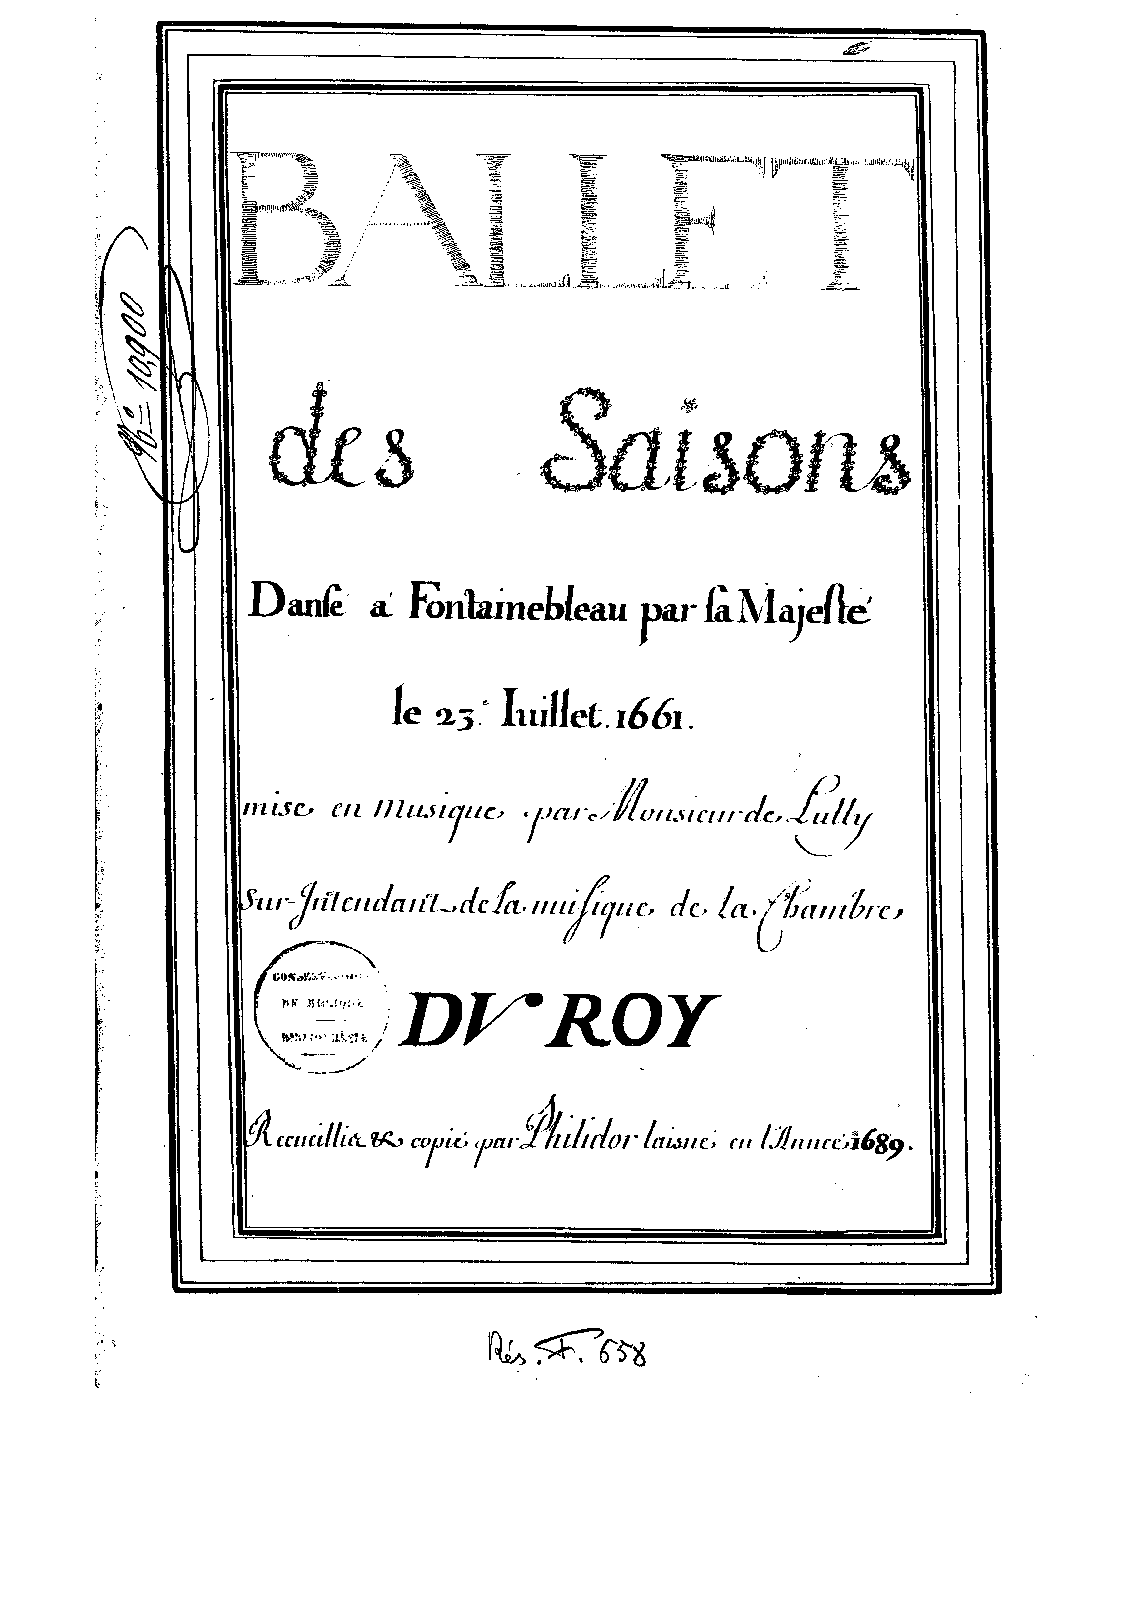 BALLET
des Saisons
Dansé a Fontainebleau par sa Majesté
le 23.e Iuillet. 1661.
mise en musique par Monsieur de Lully
Sur-Jntendant de la musique de la Chambre
DV ROY
CONSERVATOIRE
DE MUSIQUE
BIBLIOTHÈQUE
Recueillie & copié par Philidor laisné en l'Année 1689.
No 10,900
Rés. F. 658